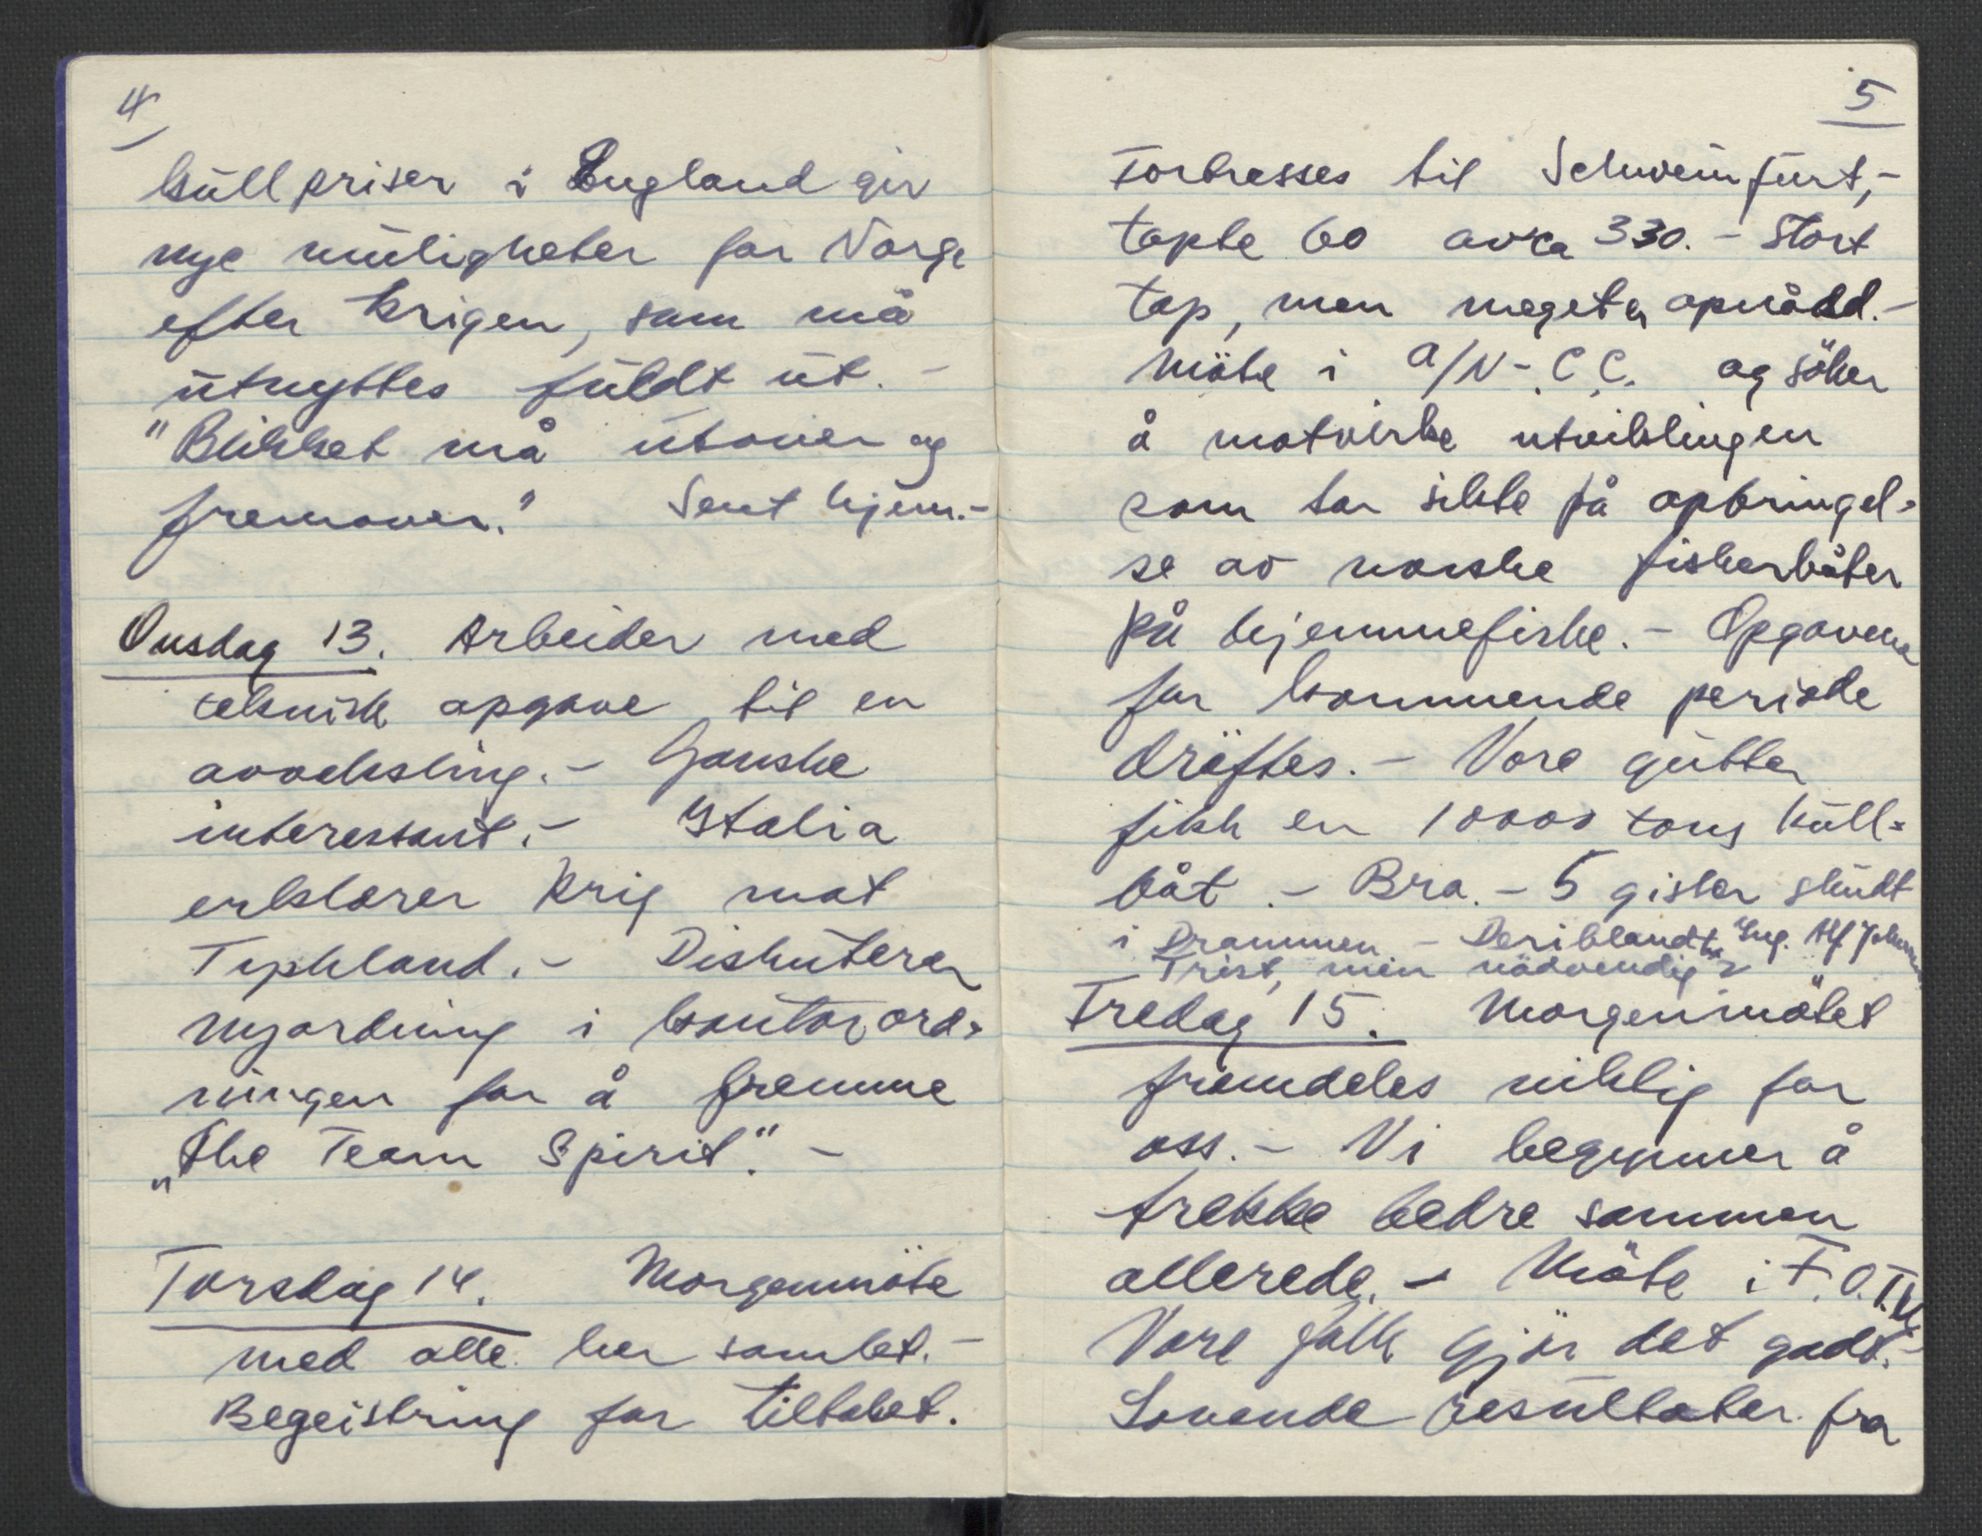 4
kullpriser i England gir
nye muligheter for Norge
efter krigen, som må
utnyttes fuldt ut. -
"Blikket må utover og
fremover." Sent hjem. -
Onsdag 13. Arbeider med
teknisk opgave til en
avveksling. - Ganske
interessant. - Italia
erklærer krig mot
Tyskland. - Diskuterer
nyordning i kontorord-
ningen for å fremme
"the Team Spirit". -
Torsdag 14. Morgenmöte
med alle her samlet. -
Begeistring for tiltaket.
5
Fortresses til Schweinfurt, -
tapte 60 av ca 330. - Stort
tap, men meget er opnådd. -
Möte i A/N - C.C. og söker
å motvirke utviklingen
som tar sikte på opbringel-
se av norske fiskerbåter
på hjemmefiske. - Opgavene
for kommende periode
dröftes. - Vore gutter
fikk en 10000 tons kull-
båt. - Bra. - 5 gisler skudt
i Drammen - Deriblandt Ing. Alf
Trist, men nödvendig?
Fredag 15. Morgenmötet
fremdeles viktig for
oss. - Vi begynner å
trekke bedre sammen
allerede. - Möte i F.O. IV.
Vore folk gjör det godt. -
Lovende resultater fra